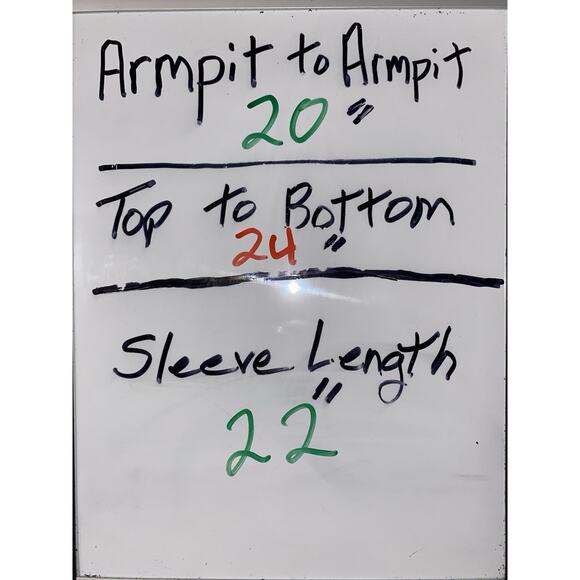 Armpit to Armpit
20"
Top to Bottom
24"
Sleeve Length
22"